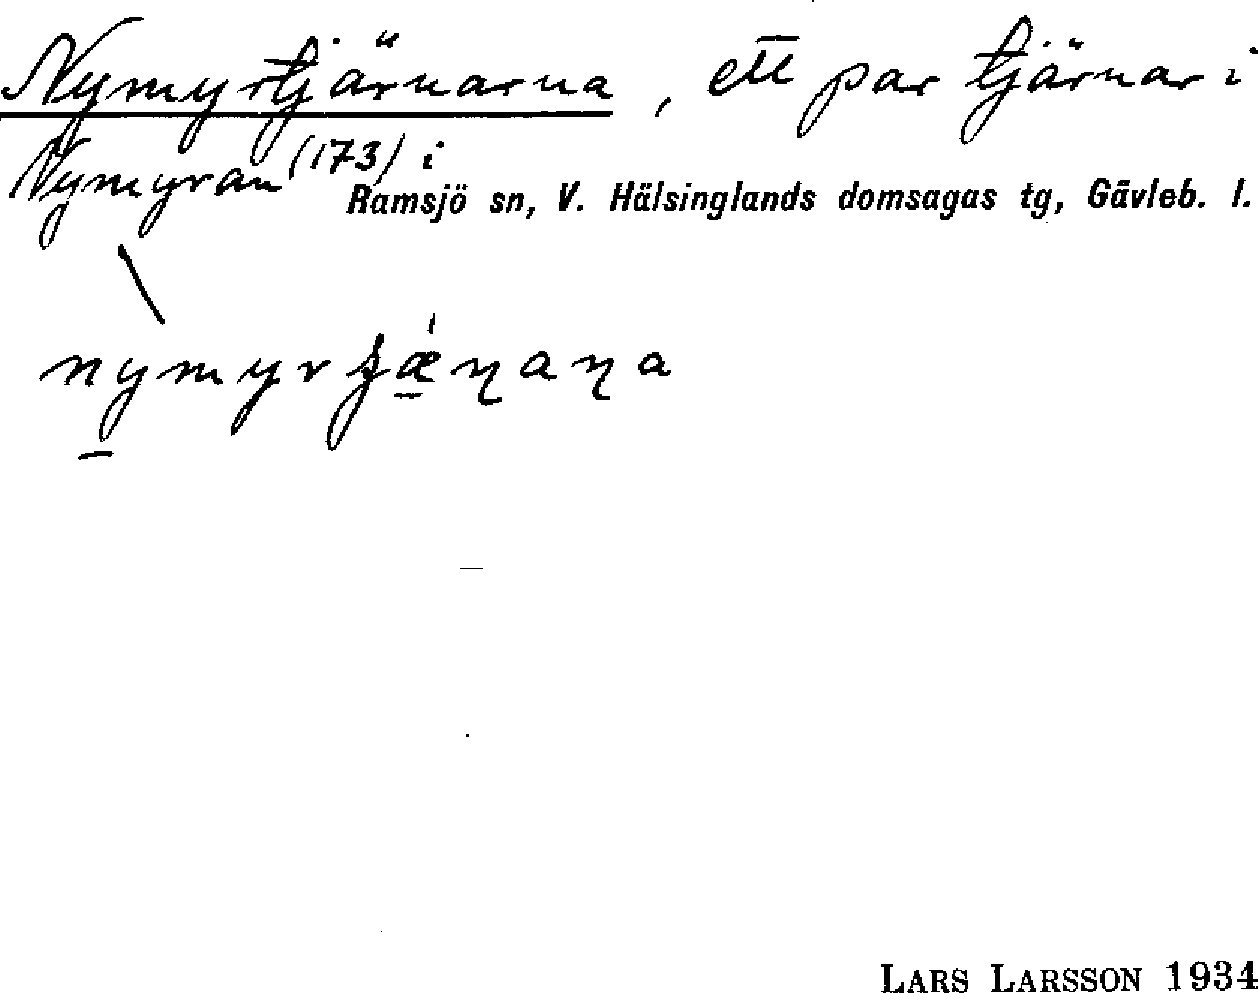 Nymyrtjärnarna, ett par tjärnar i
Nymyran (173) i
Ramsjö sn, V. Hälsinglands domsagas tg, Gävleb. l.
LARS LARSSON 1934